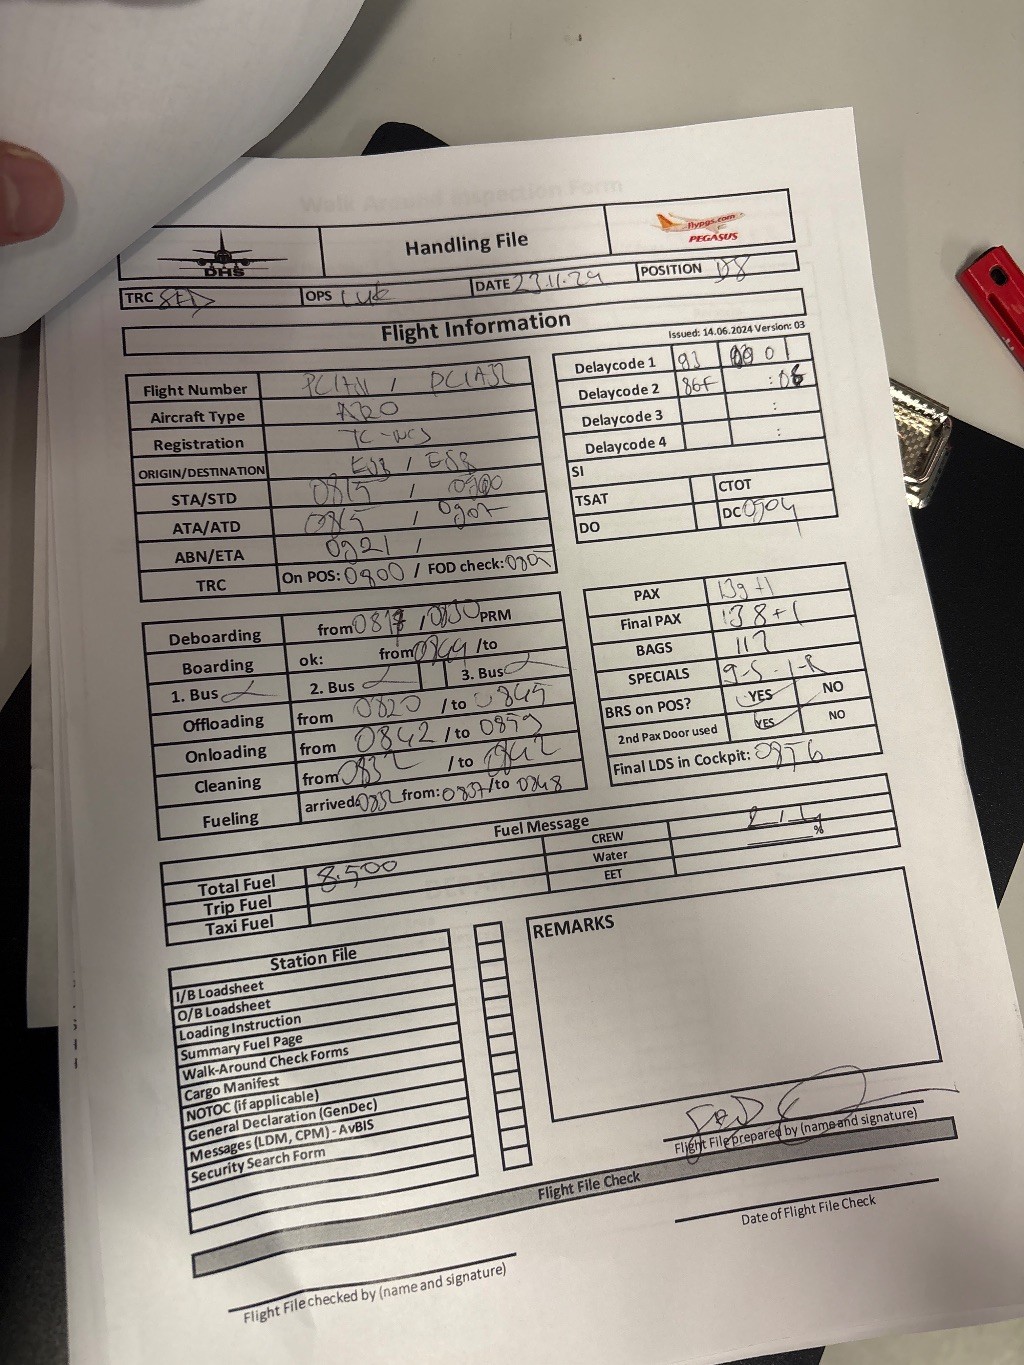 Walk Around Inspection Form
DHS Handling File flypgs.com PEGASUS
TRC SED OPS Luk DATE 23.11.24 POSITION D8
Flight Information
Issued: 14.06.2024 Version: 03
Flight Number /
Aircraft Type A320
Registration TC-NCJ
ORIGIN/DESTINATION ESB / ESB
STA/STD 0815 / 0900
ATA/ATD 0815 /
ABN/ETA 0821 /
TRC On POS: 0800 / FOD check: 0805
Delaycode 1 93 01
Delaycode 2 86F :06
Delaycode 3 :
Delaycode 4 :
SI
TSAT CTOT
DO DC 0904
Deboarding from 0817 / 0830 PRM
Boarding ok: from 0844 /to
1. Bus 2. Bus 3. Bus
Offloading from 0820 / to 0845
Onloading from 0842 / to 0859
Cleaning from 0832 / to 0842
Fueling arrived: 0832 from: 0837 /to 0848
PAX 139+1
Final PAX 138+1
BAGS 117
SPECIALS
BRS on POS? YES NO
2nd Pax Door used YES NO
Final LDS in Cockpit: 0856
Fuel Message
Total Fuel 8.500 CREW
Trip Fuel Water %
Taxi Fuel EET
Station File
I/B Loadsheet
O/B Loadsheet
Loading Instruction
Summary Fuel Page
Walk-Around Check Forms
Cargo Manifest
NOTOC (if applicable)
General Declaration (GenDec)
Messages (LDM, CPM) - AvBIS
Security Search Form
REMARKS
Flight File prepared by (name and signature)
Flight File Check
Date of Flight File Check
Flight File checked by (name and signature)